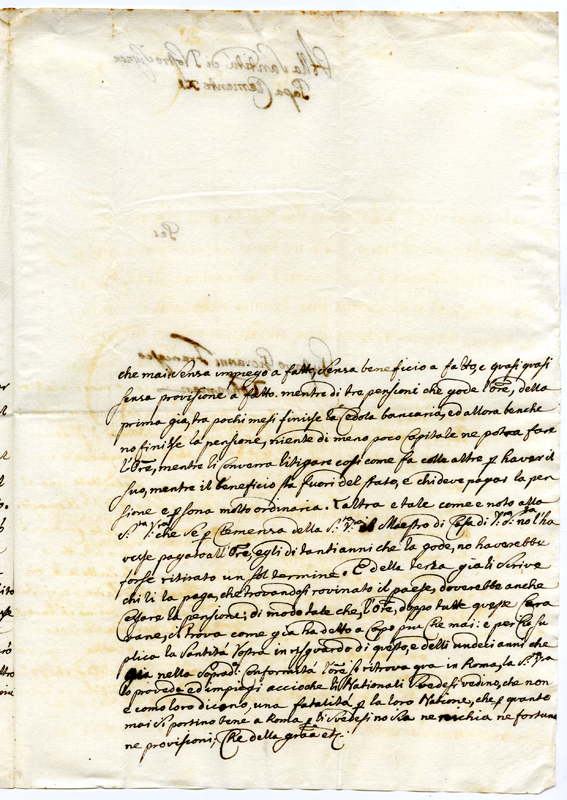 che mai senza impiego a fatto, senza beneficio a fatto, e quasi quasi
senza provisione a fatto. mentre di tre pensioni che gode l'Ore, della
prima già, tra pochi mesi finisse la Cedola bancaria, ed allora benche
no finisse la pensione, niente di meno poco capitale ne potra fare
l'Ore, mentre li converra litigare cosi come fa colle altre p haver il
suo, mentre il beneficio sta fuori del stato, e chi deve pagar la pen
sione e psona molto ordinaria. L'altra e tale come e noto alla
S.tà V.ra che se p Clemenza della S.tà V.ra il Maestro di Casa di V.ra S.tà no l'ha
vesse pagato all'Ore, egli di tanti anni che la gode, no haverebbe
forse ritirato un sol termine. E della terza già li scrive
chi li la paga, che trovandosi rovinato il paese, doverebbe anche
cessare la pensione; di modo tale che, l'Ore, doppo tutte queste Cara
vane, si trova come già ha detto a Capo piu che mai: e per cio su
plica la Santità Vostra in risguardo di questo, e delli undeci anni che
già nella Soprad.a conformità l'Ore si ritrova qua in Roma, la S.tà V.ra
lo proveda ed impieghi accioche li Nationali Svedesi vedino, che non
e como loro dicono, una fatalità p la loro Natione, che p quanto
mai si portino bene a Roma p li Svedesi no sia ne nichia ne fortuna
ne provisioni, Che della gratia etc.
Alla Santità di Nostro Sig.re
Papa Clemente XI
Per
Giovanni Francesco